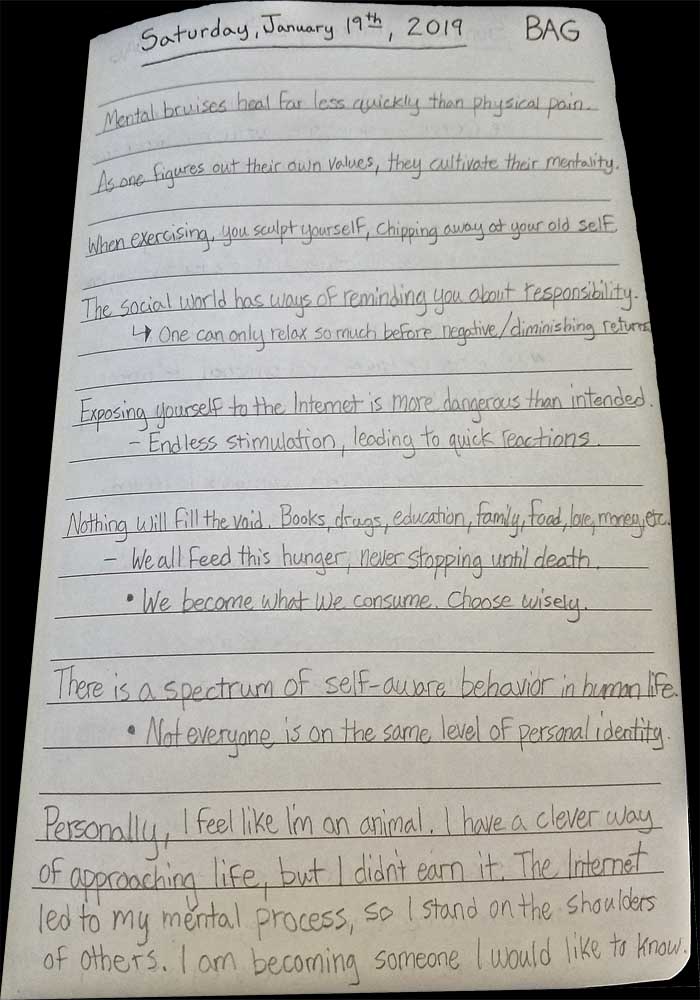 Saturday, January 19th, 2019 BAG
Mental bruises heal far less quickly than physical pain.
As one figures out their own values, they cultivate their mentality.
When exercising, you sculpt yourself, chipping away at your old self.
The social world has ways of reminding you about responsibility.
↳ One can only relax so much before negative/diminishing returns
Exposing yourself to the Internet is more dangerous than intended.
- Endless stimulation, leading to quick reactions.
Nothing will fill the void. Books, drugs, education, family, food, love, money, etc.
- We all feed this hunger, never stopping until death.
• We become what we consume. Choose wisely.
There is a spectrum of self-aware behavior in human life.
• Not everyone is on the same level of personal identity.
Personally, I feel like I'm an animal. I have a clever way
of approaching life, but I didn't earn it. The Internet
led to my mental process, so I stand on the shoulders
of others. I am becoming someone I would like to know.